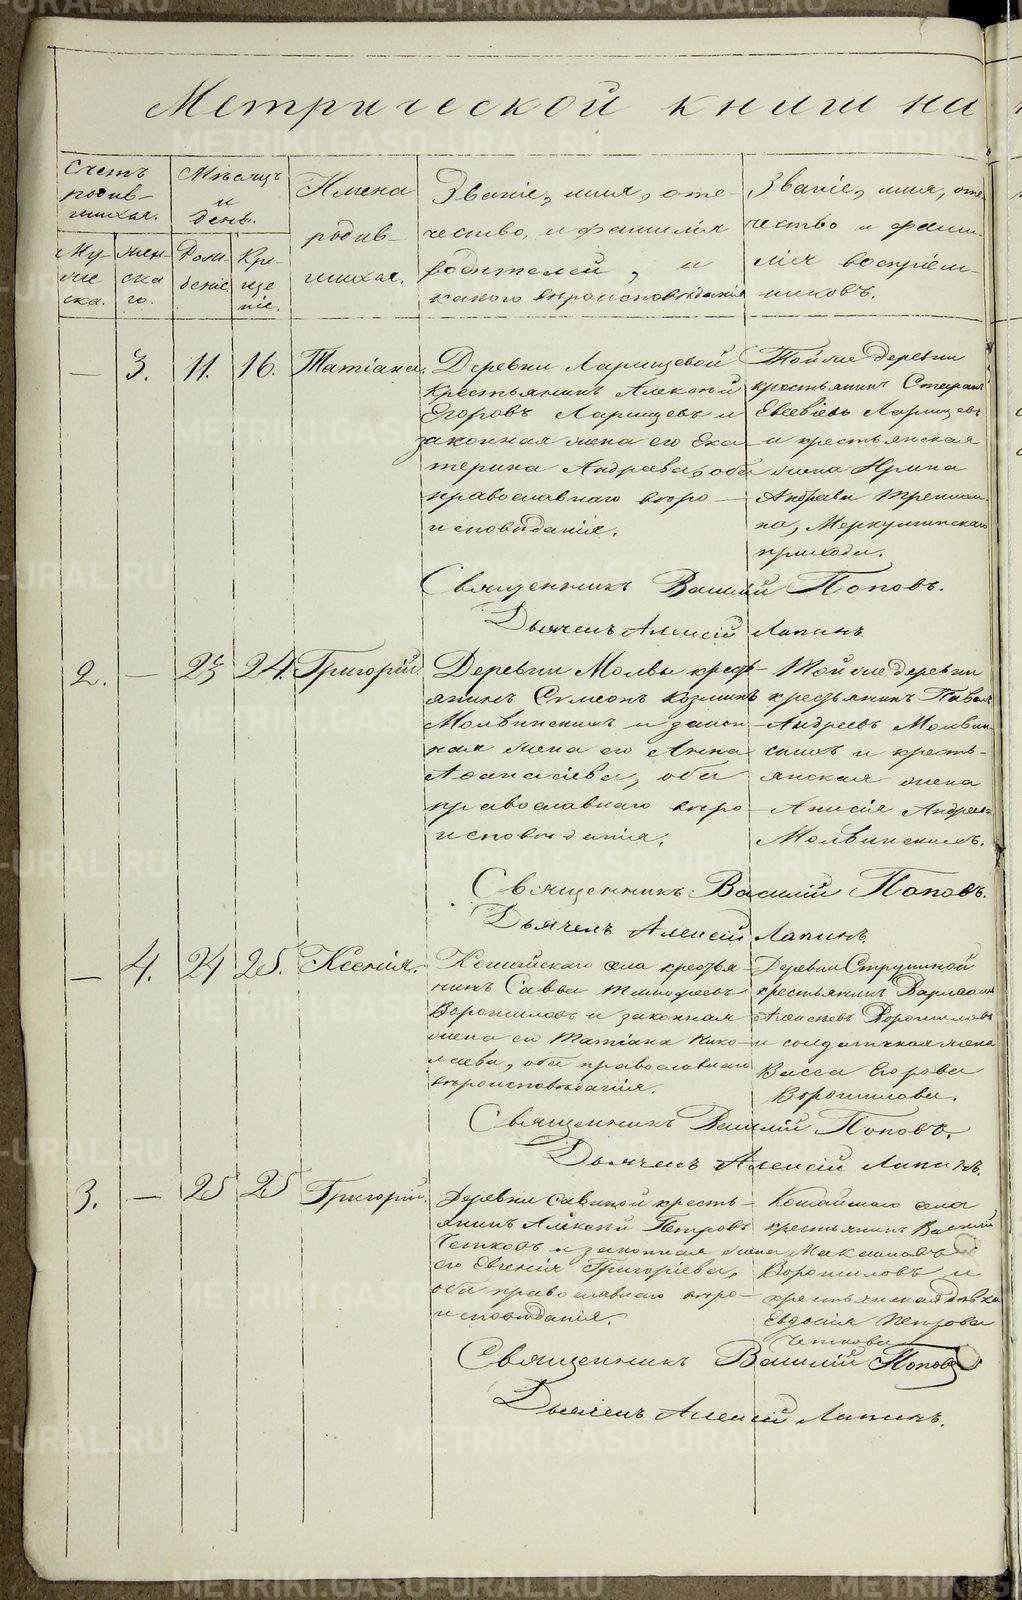 Метрической книги на
Счетъ
родив-
шихся.
Мѣсяцъ
и
день.
Имена
родив-
шихся.
Званіе, имя, оте-
чество, и фамилія
родителей, и
какого вѣроисповѣданія
Званіе, имя, оте-
чество и фами-
лія воспріем-
никовъ.
Му-
жес
ска.
жен-
ска
го.
Рож-
деніе.
Кре-
ще
ніе.
— 3. 11. 16. Татіана.
Деревни Ларищевой
крестьянинъ Алексѣй
Егоровъ Ларищевъ и
законная жена его Ека-
терина Андреева, оба
православнаго вѣро-
исповѣданія.
Той же деревни
крестьянинъ Стефанъ
Евсевіевъ Ларищевъ
и крестьянская
жена Ирина
Андреева
на, Меркушинскаго
прихода.
Священникъ Василій Поповъ.
Дьячекъ Алексій Лапинъ.
2. — 23 24. Григорій.
Деревни Молвы кресть-
янинъ Симеонъ Козминъ
Молвинскихъ и закон-
ная жена его Анна
Аѳанасіева, оба
православнаго вѣро
исповѣданія.
Той же деревни
крестьянинъ Павелъ
Андреевъ Молвин-
скихъ и кресть-
янская жена
Анисія Андреева
Молвинскихъ.
Священникъ Василій Поповъ.
Дьячекъ Алексій Лапинъ.
— 4. 24 25. Ксенія.
Кошайскаго села крестья-
нинъ Савва Тимофеевъ
Ворошиловъ и законная
жена его Татіана Нико-
лаева, оба православнаго
вѣроисповѣданія.
Деревни
крестьянинъ Варлаамъ
Алексѣевъ Ворошиловъ
и солдатская жена
Васса Егорова
Ворошилова.
Священникъ Василій Поповъ.
Дьячекъ Алексій Лапинъ.
3. — 25 25 Григорій.
Деревни Савиной кресть-
янинъ Алексѣй Петровъ
Чепковъ и законная жена
его Евгенія Григоріева,
оба православнаго вѣро-
исповѣданія.
Кошайскаго села
крестьянинъ Василій
Максимовъ
Ворошиловъ и
крестьянская дѣвка
Евдокія Петрова
Чепкова
Священникъ Василій Поповъ
Дьячекъ Алексій Лапинъ.
METRIKI.GASO-URAL.RU